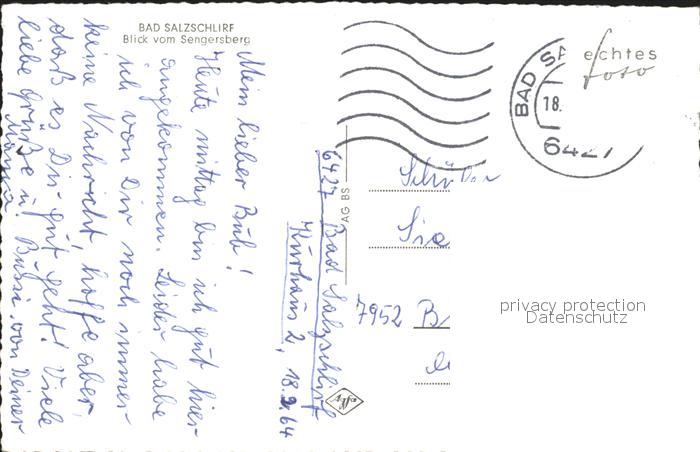 BAD SALZSCHLIRF
Blick vom Sengersberg
6427 Bad Salzschlirf
Kurhaus 2, 18.2.64
Mein lieber Bub!
Heute mittag bin ich gut hier-
angekommen. Leider habe
ich von Dir noch immer
keine Nachricht, hoffe aber,
daß es Dir gut geht! Viele
liebe Grüße u. Bussi von Deiner
Mama
AG BS
Agfa
BAD SA
18.
6427
echtes
foto
Schüler
7952 B
privacy protection
Datenschutz